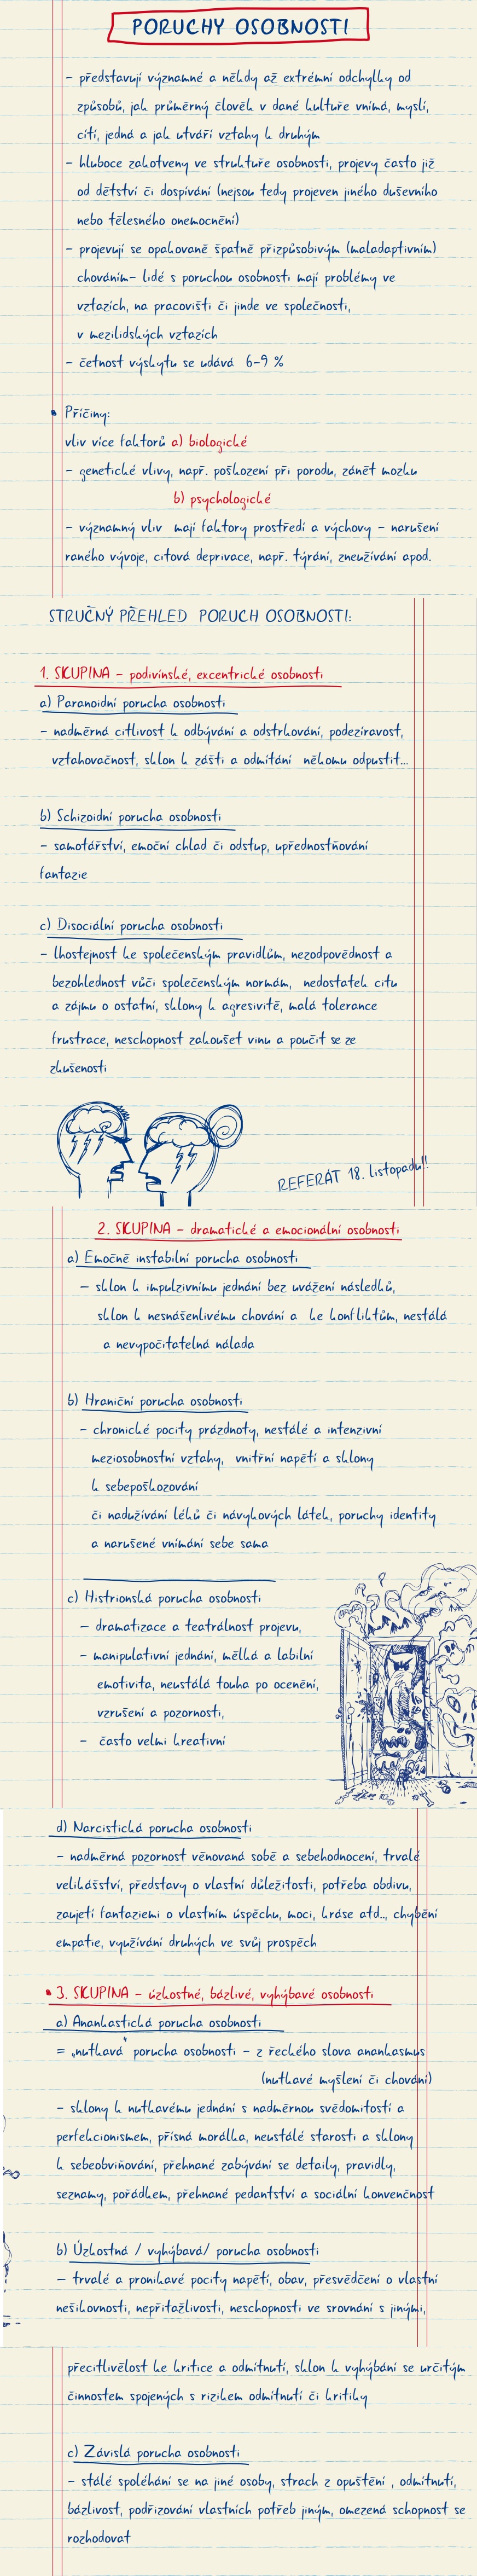 PORUCHY OSOBNOSTI
- představují významné a někdy až extrémní odchylky od
způsobů, jak průměrný člověk v dané kultuře vnímá, myslí,
cítí, jedná a jak utváří vztahy k druhým
- hluboce zakotveny ve struktuře osobnosti, projevy často již
od dětství či dospívání (nejsou tedy projeven jiného duševního
nebo tělesného onemocnění)
- projevují se opakovaně špatně přizpůsobivým (maladaptivním)
chováním- lidé s poruchou osobnosti mají problémy ve
vztazích, na pracovišti či jinde ve společnosti,
v mezilidských vztazích
- četnost výskytu se udává 6-9 %
• Příčiny:
vliv více faktorů a) biologické
- genetické vlivy, např. poškození při porodu, zánět mozku
b) psychologické
- významný vliv mají faktory prostředí a výchovy - narušení
raného vývoje, citová deprivace, např. týrání, zneužívání apod.
STRUČNÝ PŘEHLED PORUCH OSOBNOSTI:
1. SKUPINA - podivínské, excentrické osobnosti
a) Paranoidní porucha osobnosti
- nadměrná citlivost k odbývání a odstrkování, podezíravost,
vztahovačnost, sklon k zášti a odmítání někomu odpustit...
b) Schizoidní porucha osobnosti
- samotářství, emoční chlad či odstup, upřednostňování
fantazie
c) Disociální porucha osobnosti
- lhostejnost ke společenským pravidlům, nezodpovědnost a
bezohlednost vůči společenským normám, nedostatek citu
a zájmu o ostatní, sklony k agresivitě, malá tolerance
frustrace, neschopnost zakoušet vinu a poučit se ze
zkušenosti
REFERÁT 18. listopadu!!
2. SKUPINA - dramatické a emocionální osobnosti
a) Emočně instabilní porucha osobnosti
- sklon k impulzivnímu jednání bez uvážení následků,
sklon k nesnášenlivému chování a ke konfliktům, nestálá
a nevypočitatelná nálada
b) Hraniční porucha osobnosti
- chronické pocity prázdnoty, nestálé a intenzivní
meziosobnostní vztahy, vnitřní napětí a sklony
k sebepoškozování
či nadužívání léků či návykových látek, poruchy identity
a narušené vnímání sebe sama
c) Histrionská porucha osobnosti
- dramatizace a teatrálnost projevu,
- manipulativní jednání, mělká a labilní
emotivita, neustálá touha po ocenění,
vzrušení a pozornosti,
- často velmi kreativní
d) Narcistická porucha osobnosti
- nadměrná pozornost věnovaná sobě a sebehodnocení, trvalé
velikášství, představy o vlastní důležitosti, potřeba obdivu,
zaujetí fantaziemi o vlastním úspěchu, moci, kráse atd.., chybění
empatie, využívání druhých ve svůj prospěch
• 3. SKUPINA - úzkostné, bázlivé, vyhýbavé osobnosti
a) Anankastická porucha osobnosti
= „nutkavá" porucha osobnosti - z řeckého slova anankasmus
(nutkavé myšlení či chování)
- sklony k nutkavému jednání s nadměrnou svědomitostí a
perfekcionismem, přísná morálka, neustálé starosti a sklony
k sebeobviňování, přehnané zabývání se detaily, pravidly,
seznamy, pořádkem, přehnané pedantství a sociální konvenčnost
b) Úzkostná / vyhýbavá/ porucha osobnosti
- trvalé a pronikavé pocity napětí, obav, přesvědčení o vlastní
nešikovnosti, nepřitažlivosti, neschopnosti ve srovnání s jinými,
přecitlivělost ke kritice a odmítnutí, sklon k vyhýbání se určitým
činnostem spojených s rizikem odmítnutí či kritiky
c) Závislá porucha osobnosti
- stálé spoléhání se na jiné osoby, strach z opuštění , odmítnutí,
bázlivost, podřizování vlastních potřeb jiným, omezená schopnost se
rozhodovat